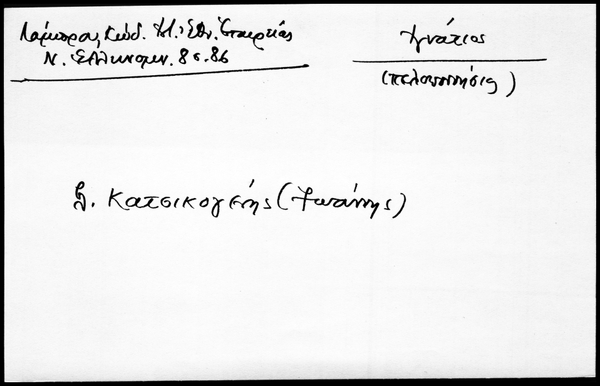 Λάμπρος, Κώδ. Ἱστ. Ἐθν. Ἑταιρείας
Ν. Ἑλληνομν. 8 σ. 86
Ἰγνάτιος
(Πελοποννήσιος)
βλ. Κατσικογένης (Ἰωάννης)